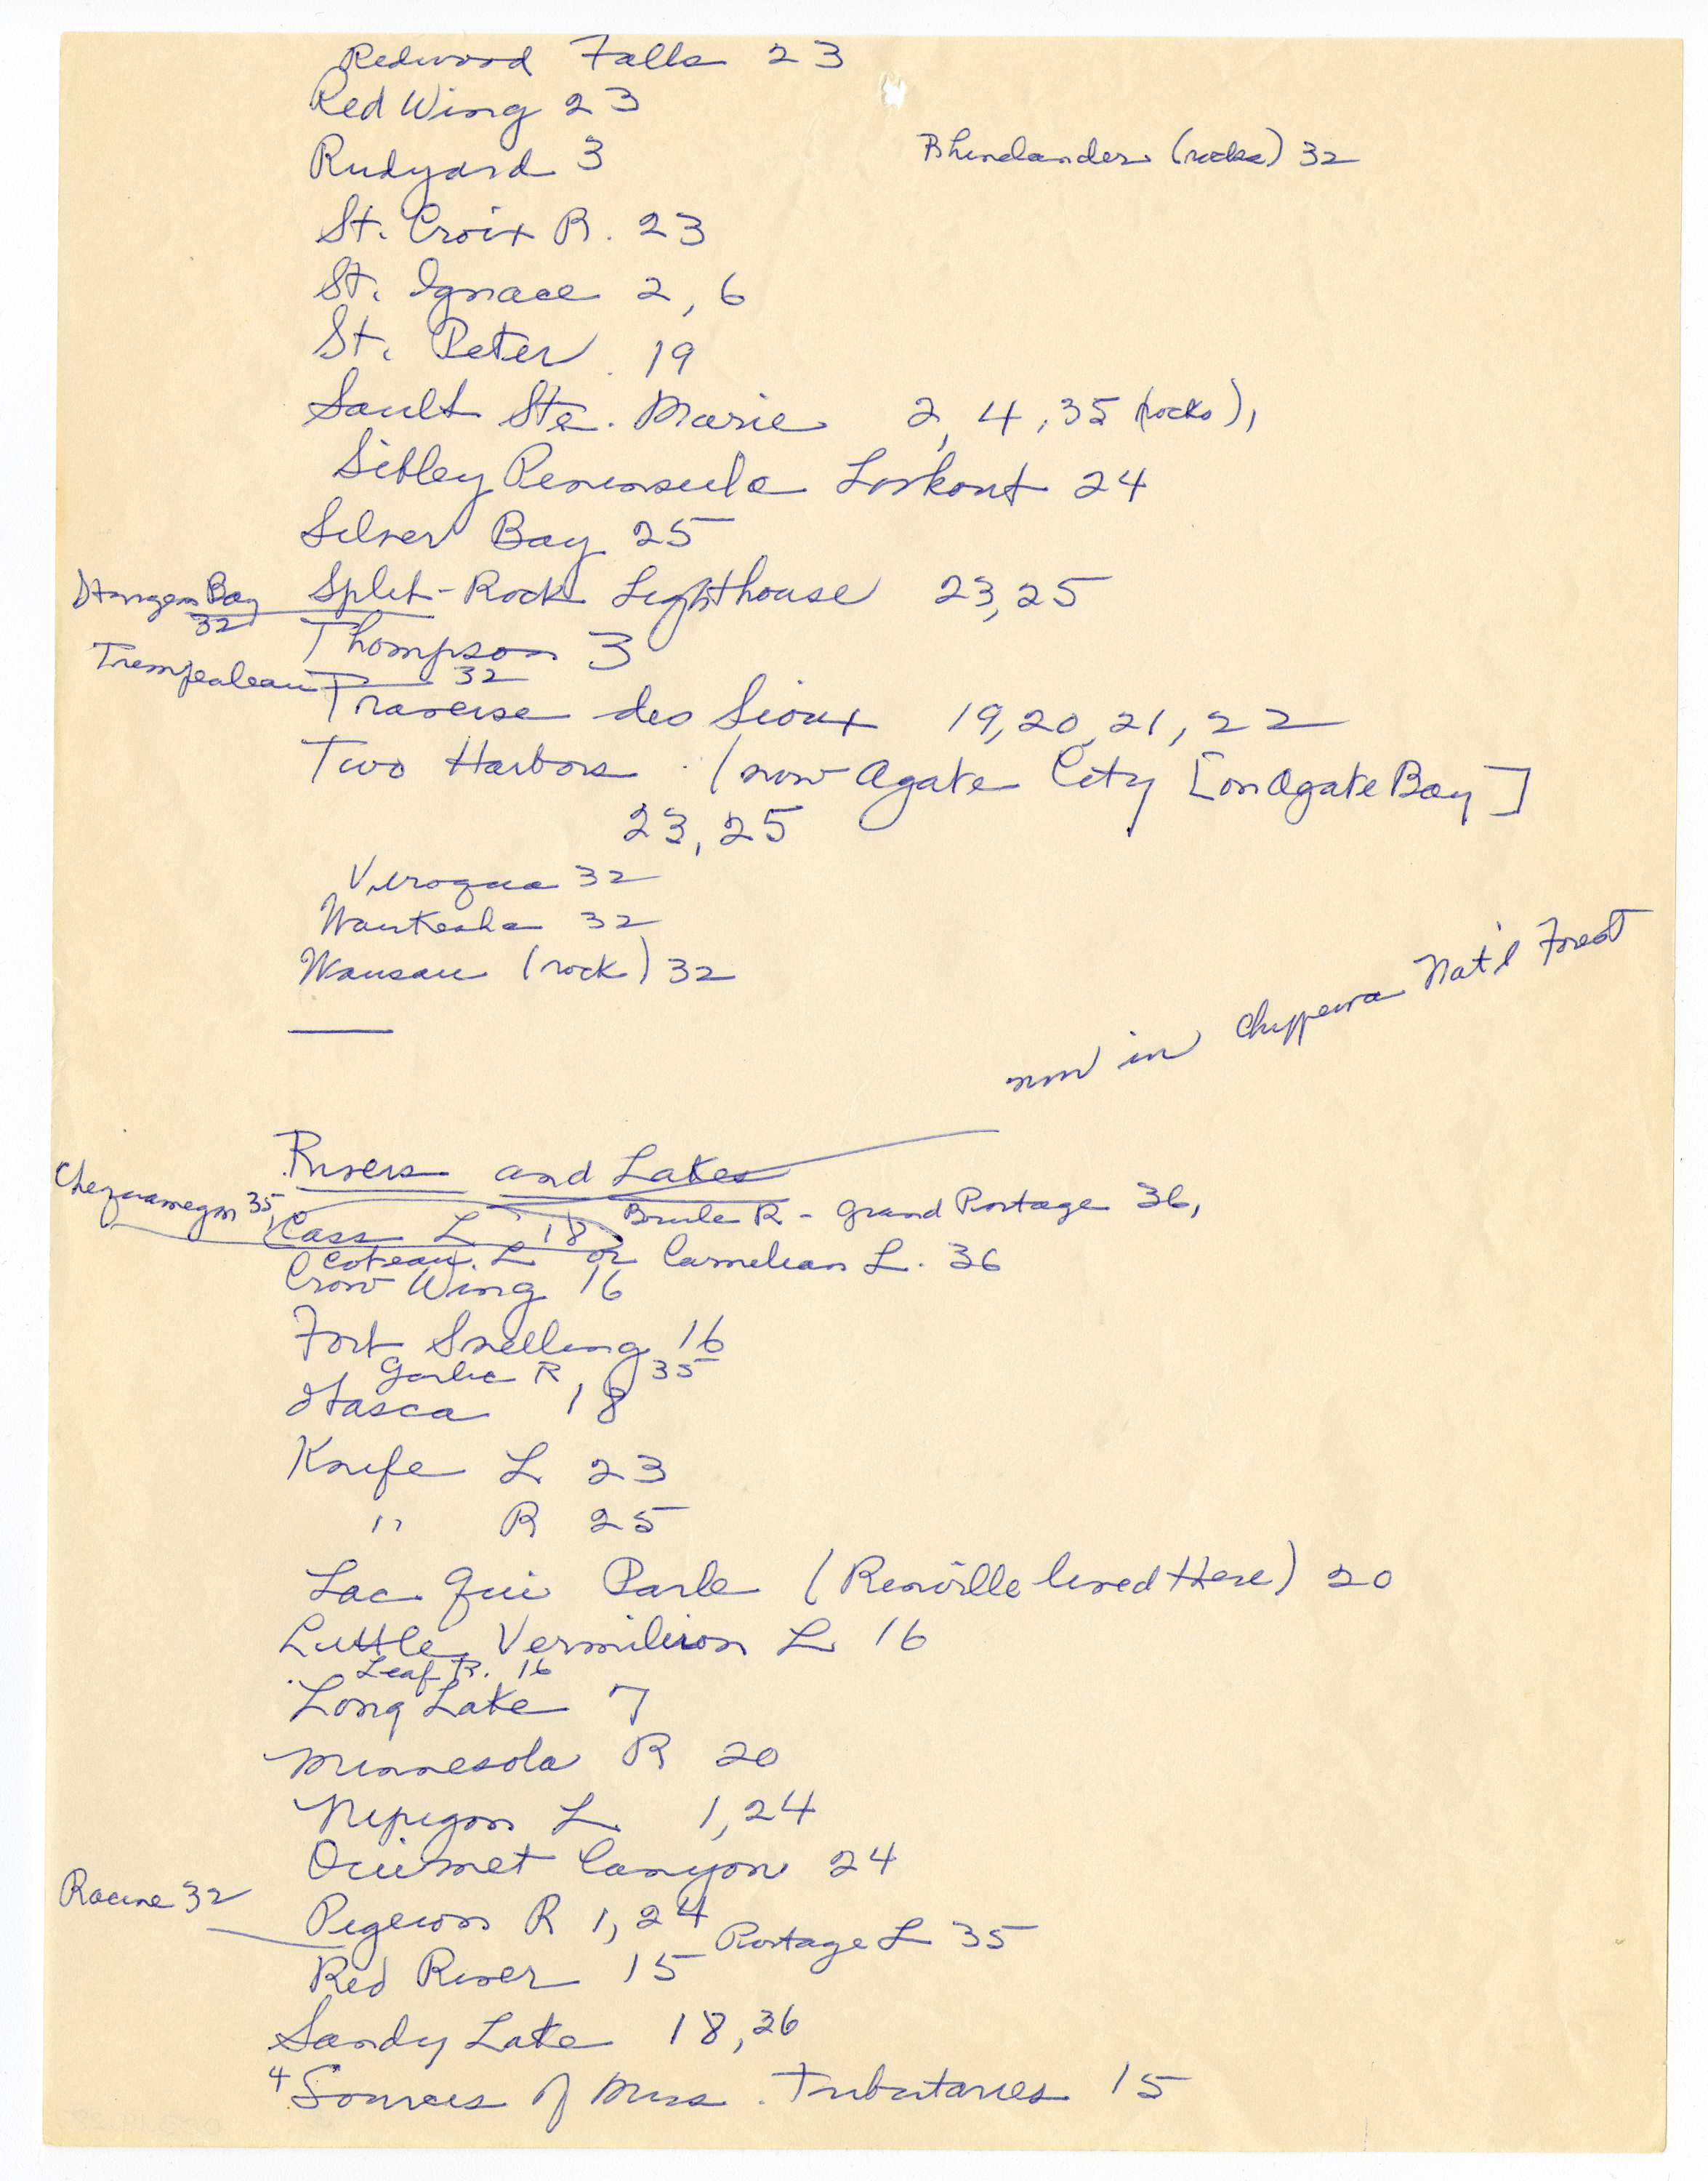 Redwood Falls 23
Red Wing 23
Rhinelander (rocks) 32
Rudyard 3
St. Croix R. 23
St. Ignace 2, 6
St. Peter 19
Sault Ste. Marie 2, 4, 35 (rocks),
Sibley Peninsula Lookout 24
Silver Bay 25
Split-Rock Lighthouse 23, 25
Sturgeon Bay
32
Thompson 3
Trempealeau 32
Traverse des Sioux 19, 20, 21, 22
Two Harbors (now Agate City [on Agate Bay]
23, 25
Viroqua 32
Waukesha 32
Wausau (rock) 32
now in Chippewa Nat'l Forest
Rivers and Lakes
Chequamegon 35,
Brule R - Grand Portage 36,
Cass L 18
Coteau L or Carnelian L. 36
Crow Wing 16
Fort Snelling 16
Garlic R 35
Itasca 18
Knife L 23
" R 25
Lac qui Parle (Renville lived there) 20
Little Vermilion L 16
Leaf R. 16
Long Lake 7
Minnesota R 20
Nipigon L 1, 24
Ouimet Canyon 24
Racine 32
Pigeon R 1, 24
Portage L 35
Red River 15
Sandy Lake 18, 36
4 Sources of Miss. Tributaries 15